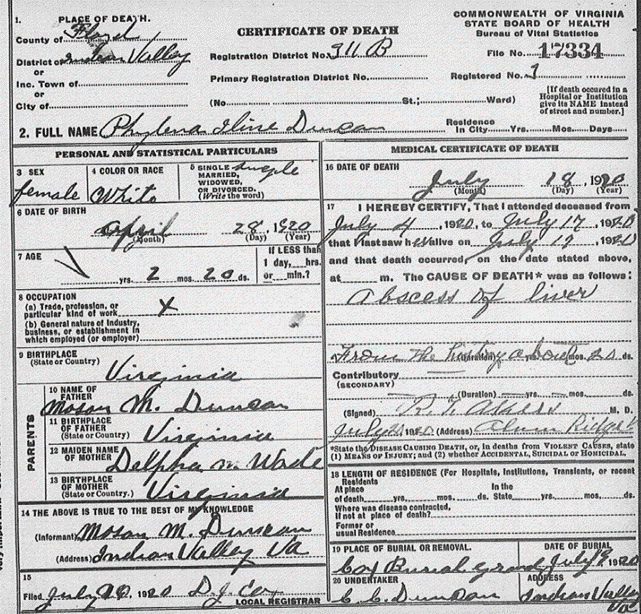 1. PLACE OF DEATH.
County of Floyd
District of Indian Valley
or
Inc. Town of
or
City of
CERTIFICATE OF DEATH
Registration District No. 311 B
Primary Registration District No.
(No. St.; Ward)
COMMONWEALTH OF VIRGINIA
STATE BOARD OF HEALTH
Bureau of Vital Statistics
File No. 17334
Registered No.
[If death occured in a
Hospital or Institution
give its NAME instead
of street and number.]
Residence
In City Yrs. Mos. Days
2. FULL NAME Phylena Iline Duncan
PERSONAL AND STATISTICAL PARTICULARS
3 SEX
female
4 COLOR OR RACE
White
5 SINGLE
MARRIED,
WIDOWED,
OR DIVORCED.
(Write the word)
single
6 DATE OF BIRTH
April 28, 1920
(Month) (Day) (Year)
7 AGE
yrs. 2 mos. 20 ds.
If LESS than
1 day, hrs.
or min.?
8 OCCUPATION
(a) Trade, profession, or
particular kind of work X
(b) General nature of industry,
business, or establishment in
which employed (or employer)
9 BIRTHPLACE
(State or Country)
Virginia
PARENTS
10 NAME OF
FATHER
Mosan M. Duncan
11 BIRTHPLACE
OF FATHER
(State or Country)
Virginia
12 MAIDEN NAME
OF MOTHER
Delpha M Wade
13 BIRTHPLACE
OF MOTHER
(State or Country)
Virginia
14 THE ABOVE IS TRUE TO THE BEST OF MY KNOWLEDGE
(Informant) Mosan M. Duncan
(Address) Indian Valley Va
15
Filed July 1920 D. J. Cox
LOCAL REGISTRAR
MEDICAL CERTIFICATE OF DEATH
16 DATE OF DEATH
July 18, 1920
(Month) (Day) (Year)
17 I HEREBY CERTIFY, That I attended deceased from
July 4 1920, to July 17, 1920
that I last saw h alive on July 1920
and that death occurred on the date stated above,
at m. The CAUSE OF DEATH* was as follows:
abscess of liver
From the history about mos. 20 ds.
Contributory
(SECONDARY)
(Duration) yrs. mos. ds.
(Signed) M. D.
July 1920 (Address) Alum Ridge
*State the DISEASE CAUSING DEATH, or, in deaths from VIOLENT CAUSES, state
(1) MEANS OF INJURY; and (2) whether ACCIDENTAL, SUICIDAL or HOMICIDAL.
18 LENGTH OF RESIDENCE (For Hospitals, Institutions, Transients, or recent
Residents
At place In the
of death yrs. mos. ds. State yrs. mos. ds.
Where was disease contracted,
if not at place of death?
Former or
usual Residence
19 PLACE OF BURIAL OR REMOVAL.
Cox Burial Ground
DATE OF BURIAL
July 19 1920
20 UNDERTAKER
C. C. Duncan
ADDRESS
Indian Valley
Va